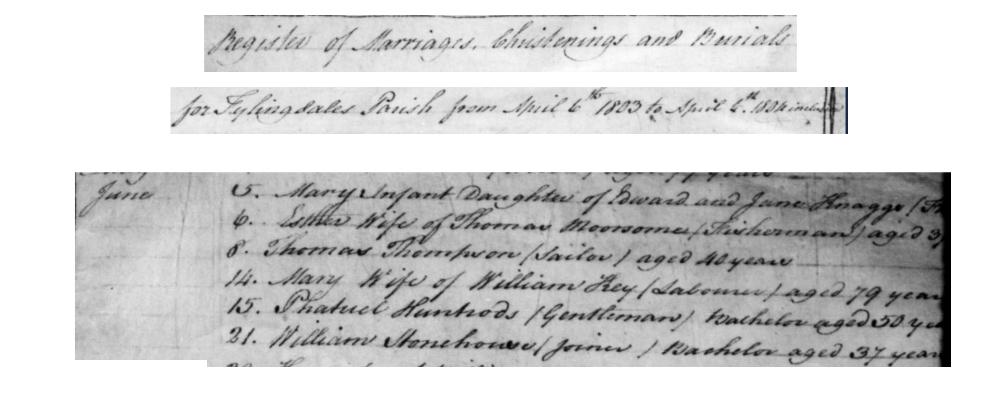 Register of Marriages, Christenings and Burials
for Fylingdales Parish from April 6th 1803 to April 6th 1804
June 5. Mary Infant Daughter of Edward and Jane Knaggs
6. Esther Wife of Thomas Moorsome (Fisherman) aged 3
8. Thomas Thompson (Sailor) aged 40 years
14. Mary Wife of William Key (Labourer) aged 79 year
15. Phatuel Huntrods (Gentleman) Bachelor aged 50 ye
21. William Stonehouse (Joiner) Bachelor aged 37 year